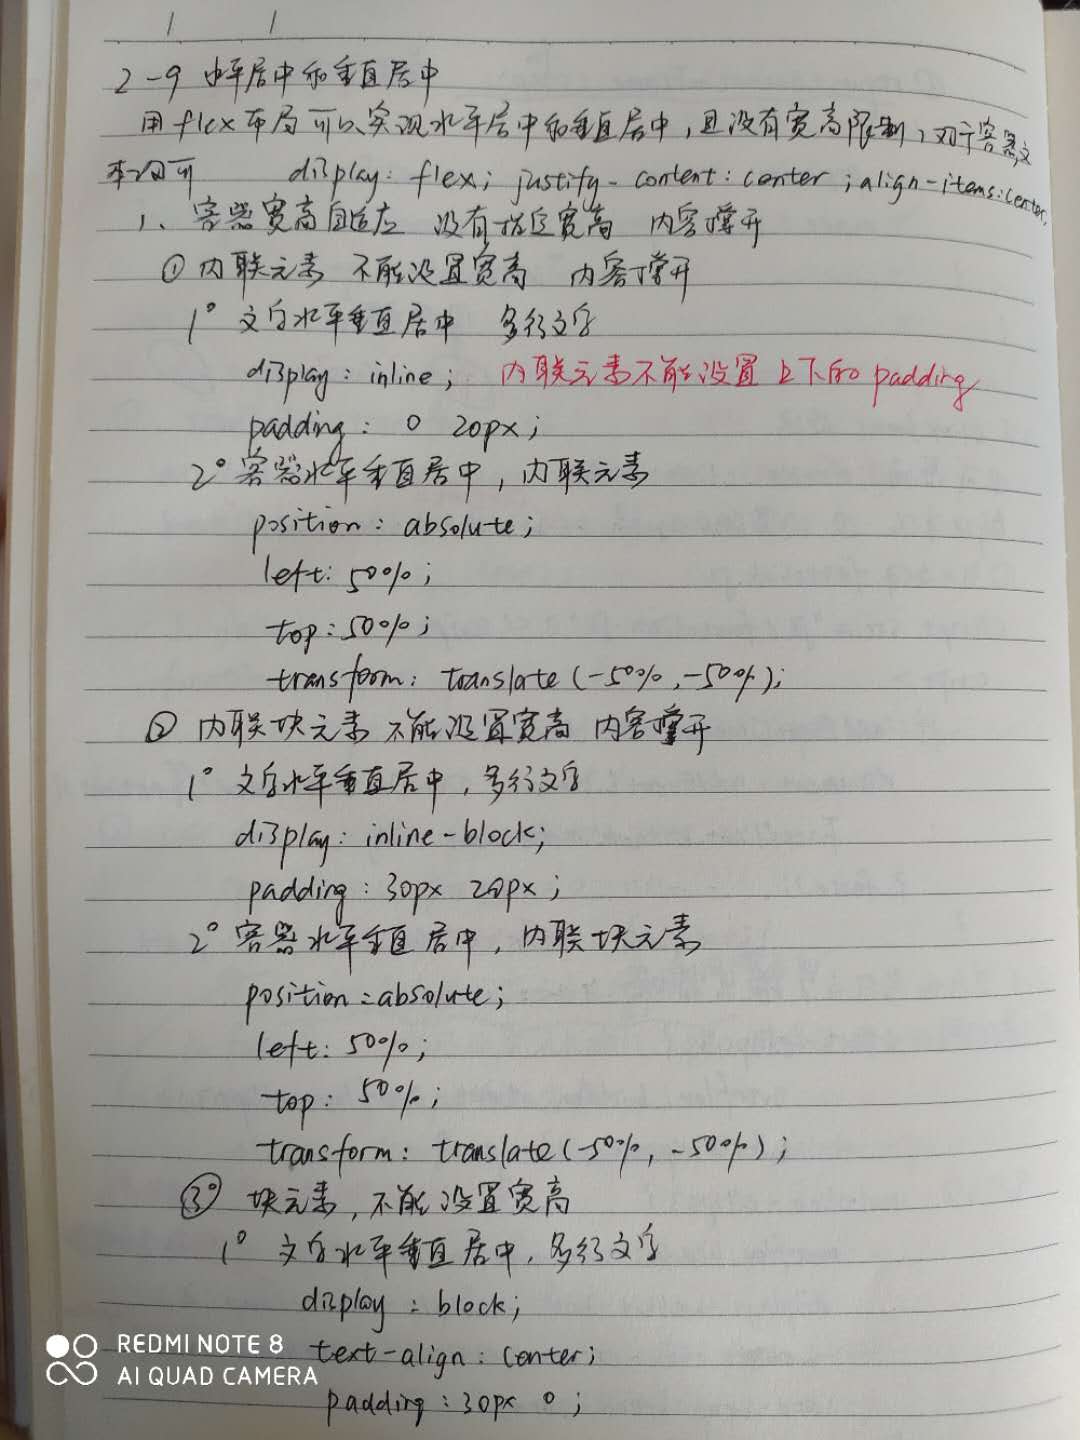 2-9 水平居中和垂直居中
用flex布局可以实现水平居中和垂直居中,且没有宽高限制,对于容器,文
本均可 display: flex; justify-content: center; align-items: center;
1、容器宽高自适应 没有指定宽高 内容撑开
① 内联元素 不能设置宽高 内容撑开
1° 文字水平垂直居中 多行文字
display: inline; 内联元素不能设置上下的padding
padding: 0 20px;
2° 容器水平垂直居中,内联元素
position: absolute;
left: 50%;
top: 50%;
transform: translate(-50%,-50%);
② 内联块元素 不能设置宽高 内容撑开
1° 文字水平垂直居中,多行文字
display: inline-block;
padding: 30px 20px;
2° 容器水平垂直居中,内联块元素
position: absolute;
left: 50%;
top: 50%;
transform: translate(-50%, -50%);
③ 块元素,不能设置宽高
1° 文字水平垂直居中,多行文字
display: block;
text-align: center;
padding: 30px 0;
REDMI NOTE 8
AI QUAD CAMERA